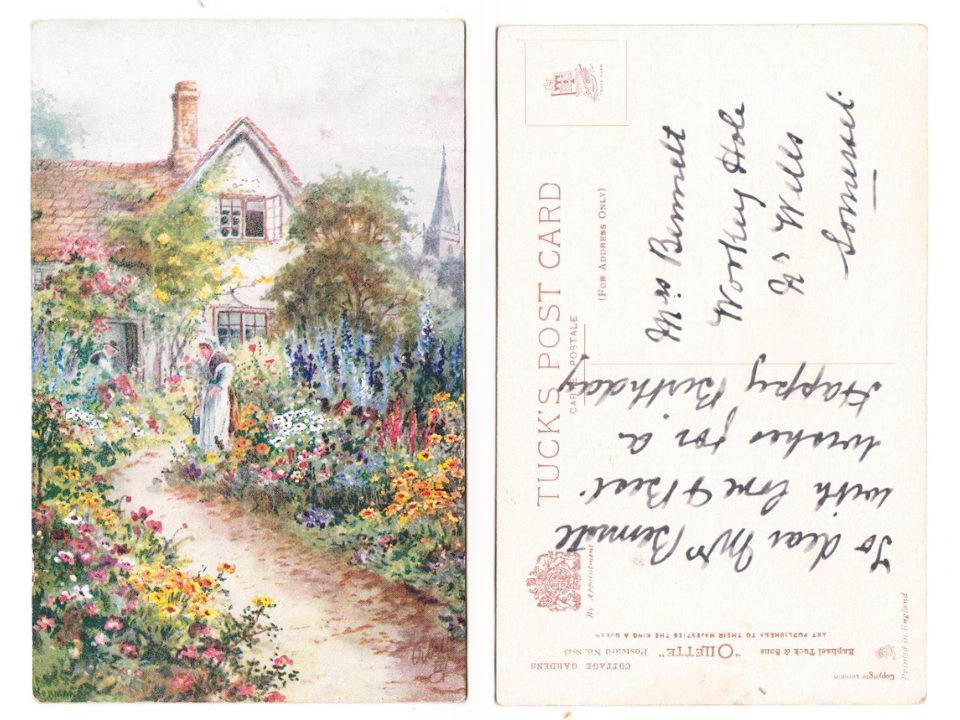 TUCK'S POST CARD
CARTE POSTALE
(FOR ADDRESS ONLY)
To dear Mrs Bennett
with love & Best
wishes for a
Happy Birthday
Mrs. Bennett
Wookey Hole
Nr Wells
Somerset.
By Appointment
ART PUBLISHERS TO THEIR MAJESTIES THE KING & QUEEN
Raphael Tuck & Sons "OILETTE" Postcard No.
COTTAGE GARDENS
Copyright London
Printed in England